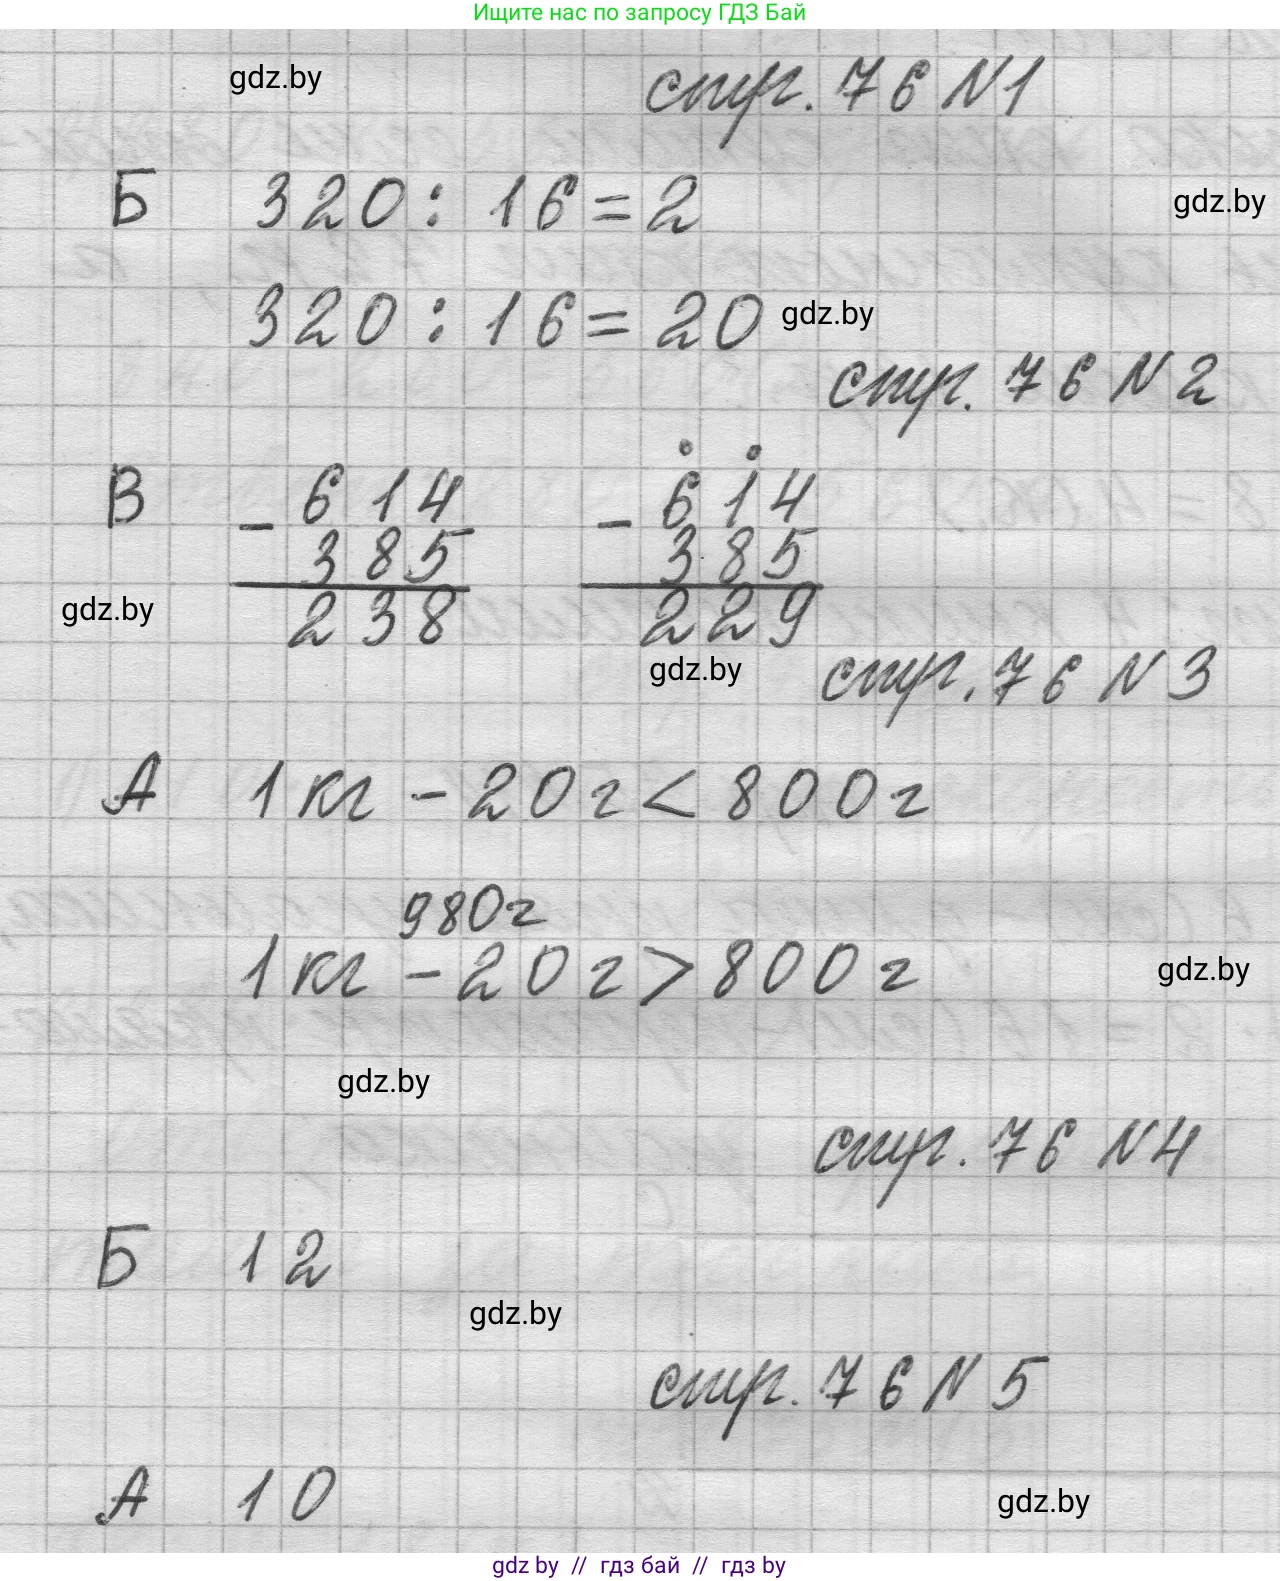 Ищите нас по запросу ГДЗ Бай
gdz.by
стр. 76 N1
Б 320 : 16 = 2
gdz.by
320 : 16 = 20
gdz.by
стр. 76 N2
В - 614 - 614
385 385
gdz.by
238 229
gdz.by
стр. 76 N3
А 1 кг - 20 г < 800 г
980 г
1 кг - 20 г > 800 г
gdz.by
gdz.by
стр. 76 N4
Б 12
gdz.by
стр. 76 N5
А 10
gdz.by
gdz by // гдз бай // гдз by